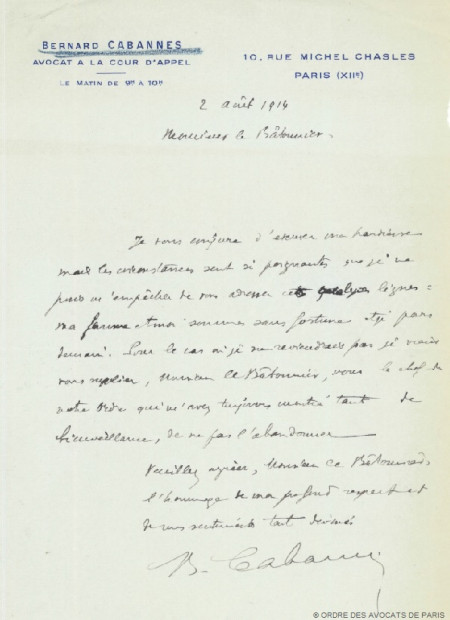 BERNARD CABANNES
AVOCAT A LA COUR D'APPEL
LE MATIN DE 9H A 10H
10, RUE MICHEL CHASLES
PARIS (XIIe)
2 août 1914
Monsieur le Bâtonnier.
Je vous conjure d'excuser ma hardiesse
mais les circonstances sont si poignantes que je ne
puis m'empêcher de vous adresser quelques lignes :
ma femme et moi sommes sans fortune et je pars
demain. Pour le cas où je ne reviendrais pas je viens
vous supplier, Monsieur le Bâtonnier, vous le chef de
notre Ordre qui m'avez toujours montré tant de
bienveillance, de ne pas l'abandonner
Veuillez agréer, Monsieur le Bâtonnier,
l'hommage de mon profond respect et
de mes sentiments tout dévoués
B. Cabannes
© ORDRE DES AVOCATS DE PARIS